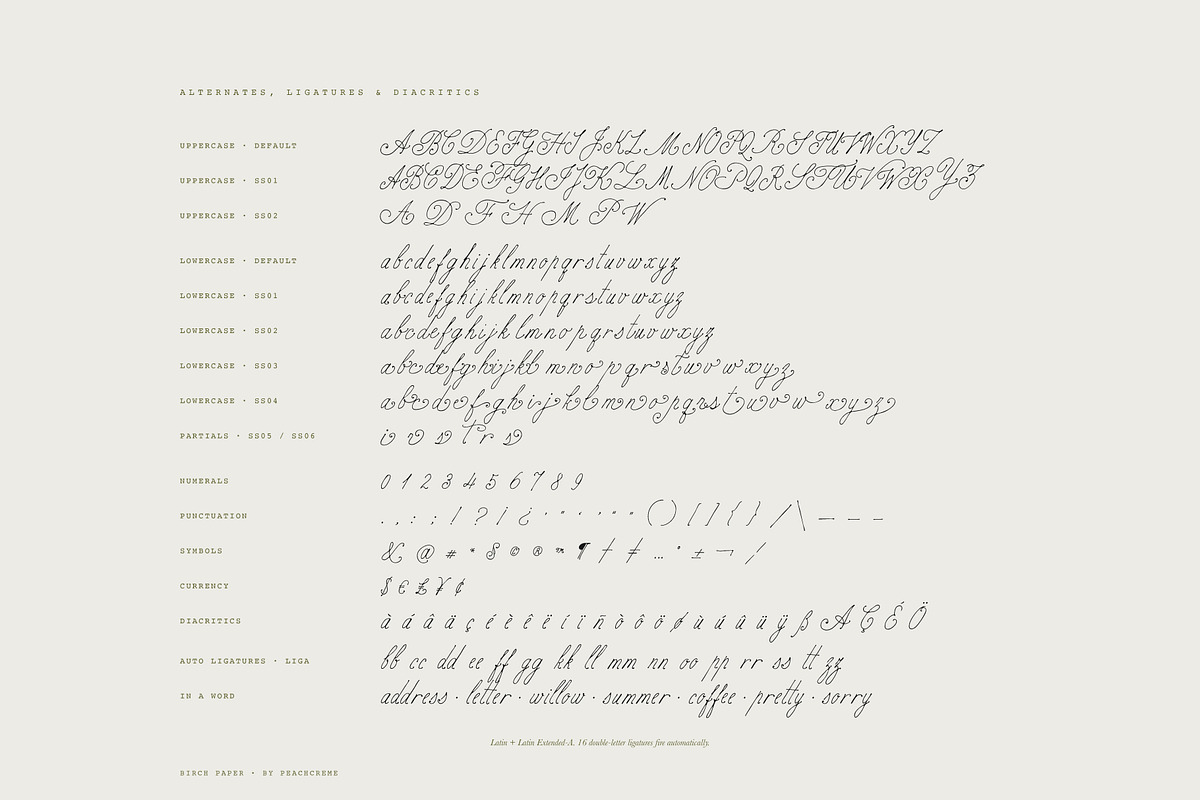 ALTERNATES, LIGATURES & DIACRITICS
UPPERCASE · DEFAULT ABCDEFGHIJKLMNOPQRSTUVWXYZ
UPPERCASE · SS01 ABCDEFGHIJKLMNOPQRSTUVWXYZ
UPPERCASE · SS02 A D F H M P W
LOWERCASE · DEFAULT abcdefghijklmnopqrstuvwxyz
LOWERCASE · SS01 abcdefghijklmnopqrstuvwxyz
LOWERCASE · SS02 abcdefghijklmnopqrstuvwxyz
LOWERCASE · SS03 abcdefghijklmnopqrstuvwxyz
LOWERCASE · SS04 abcdefghijklmnopqrstuvwxyz
PARTIALS · SS05 / SS06
NUMERALS 0 1 2 3 4 5 6 7 8 9
PUNCTUATION . , : ; ! ? ¡ ¿ ' " ‘ ’ “ ” ( ) [ ] { } / \ – — -
SYMBOLS & @ # * § © ® ™ ¶ † ‡ … ° ± ¬ /
CURRENCY $ € £ ¥ ¢
DIACRITICS à á â ä ç é è ê ë í ï ñ ò ô ö ø ù ú û ü ÿ ß A Ç É Ö
AUTO LIGATURES · LIGA bb cc dd ee ff gg kk ll mm nn oo pp rr ss tt zz
IN A WORD address · letter · willow · summer · coffee · pretty · sorry
Latin + Latin Extended-A. 16 double-letter ligatures fire automatically.
BIRCH PAPER · BY PEACHCREME